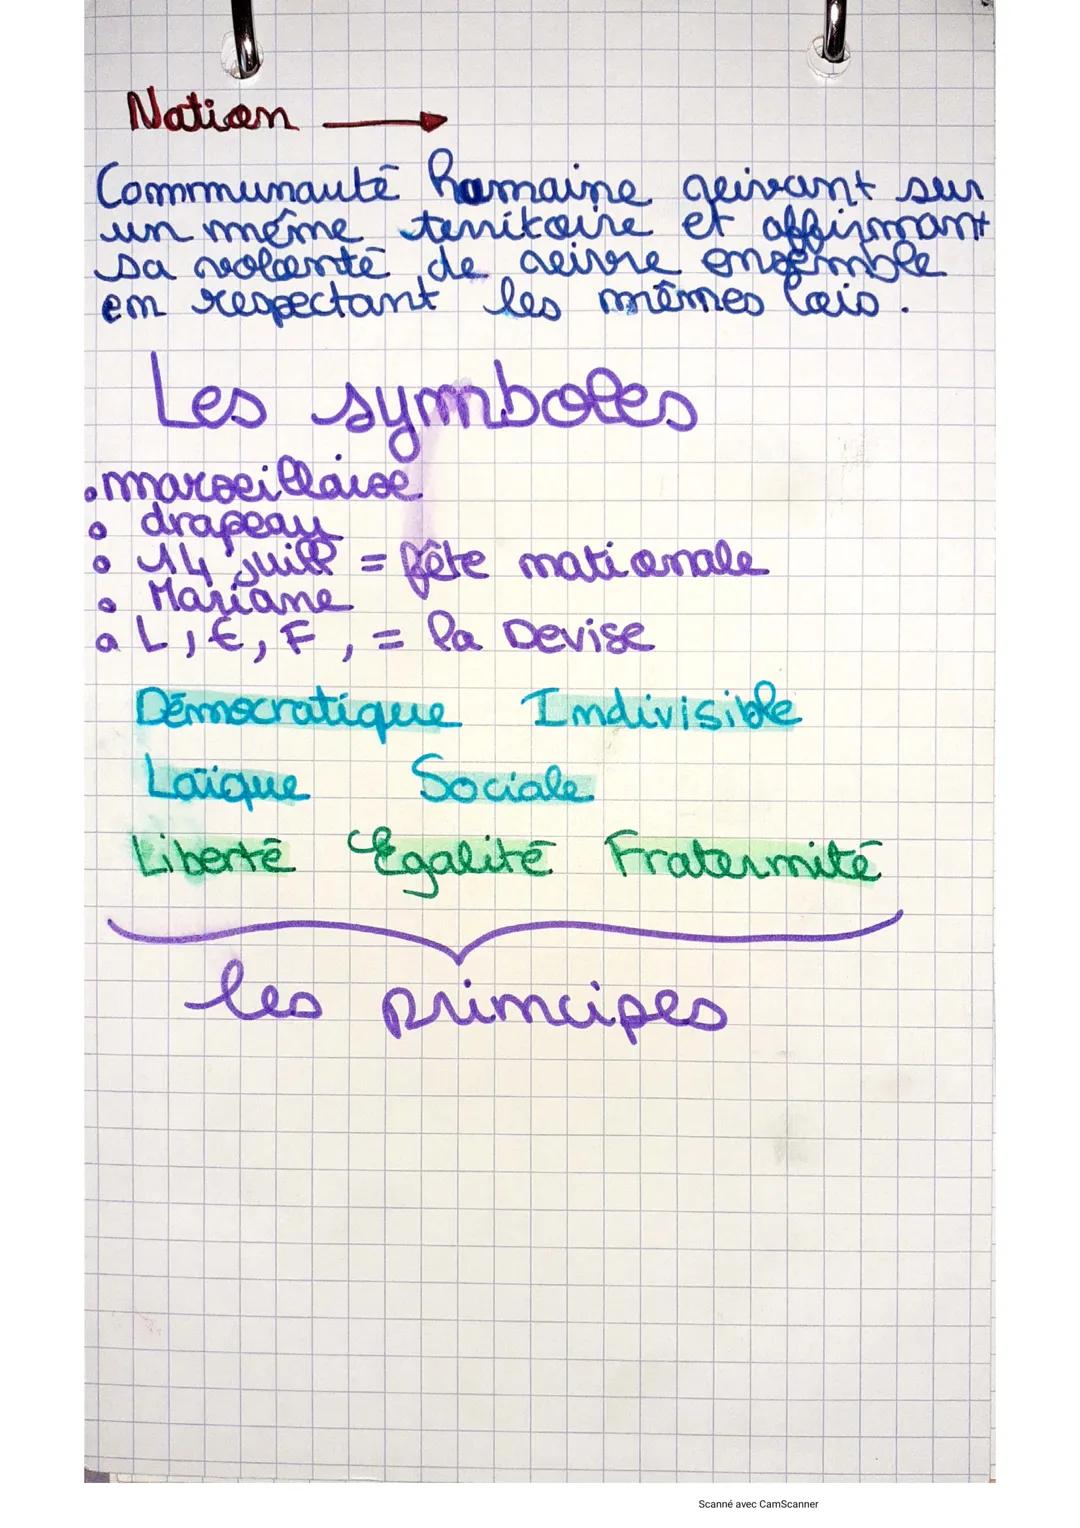 Nation
Communauté humaine vivant sur
un même territoire et affirmant
sa volonté de vivre ensemble
en respectant les mêmes lois.
Les symboles
• marseillaise
• drapeau
• 14 juill = fête nationale
• Mariane
• L, E, F, = la Devise
Démocratique Indivisible
Laïque Sociale
Liberté Egalité Fraternité
les principes
Scanné avec CamScanner